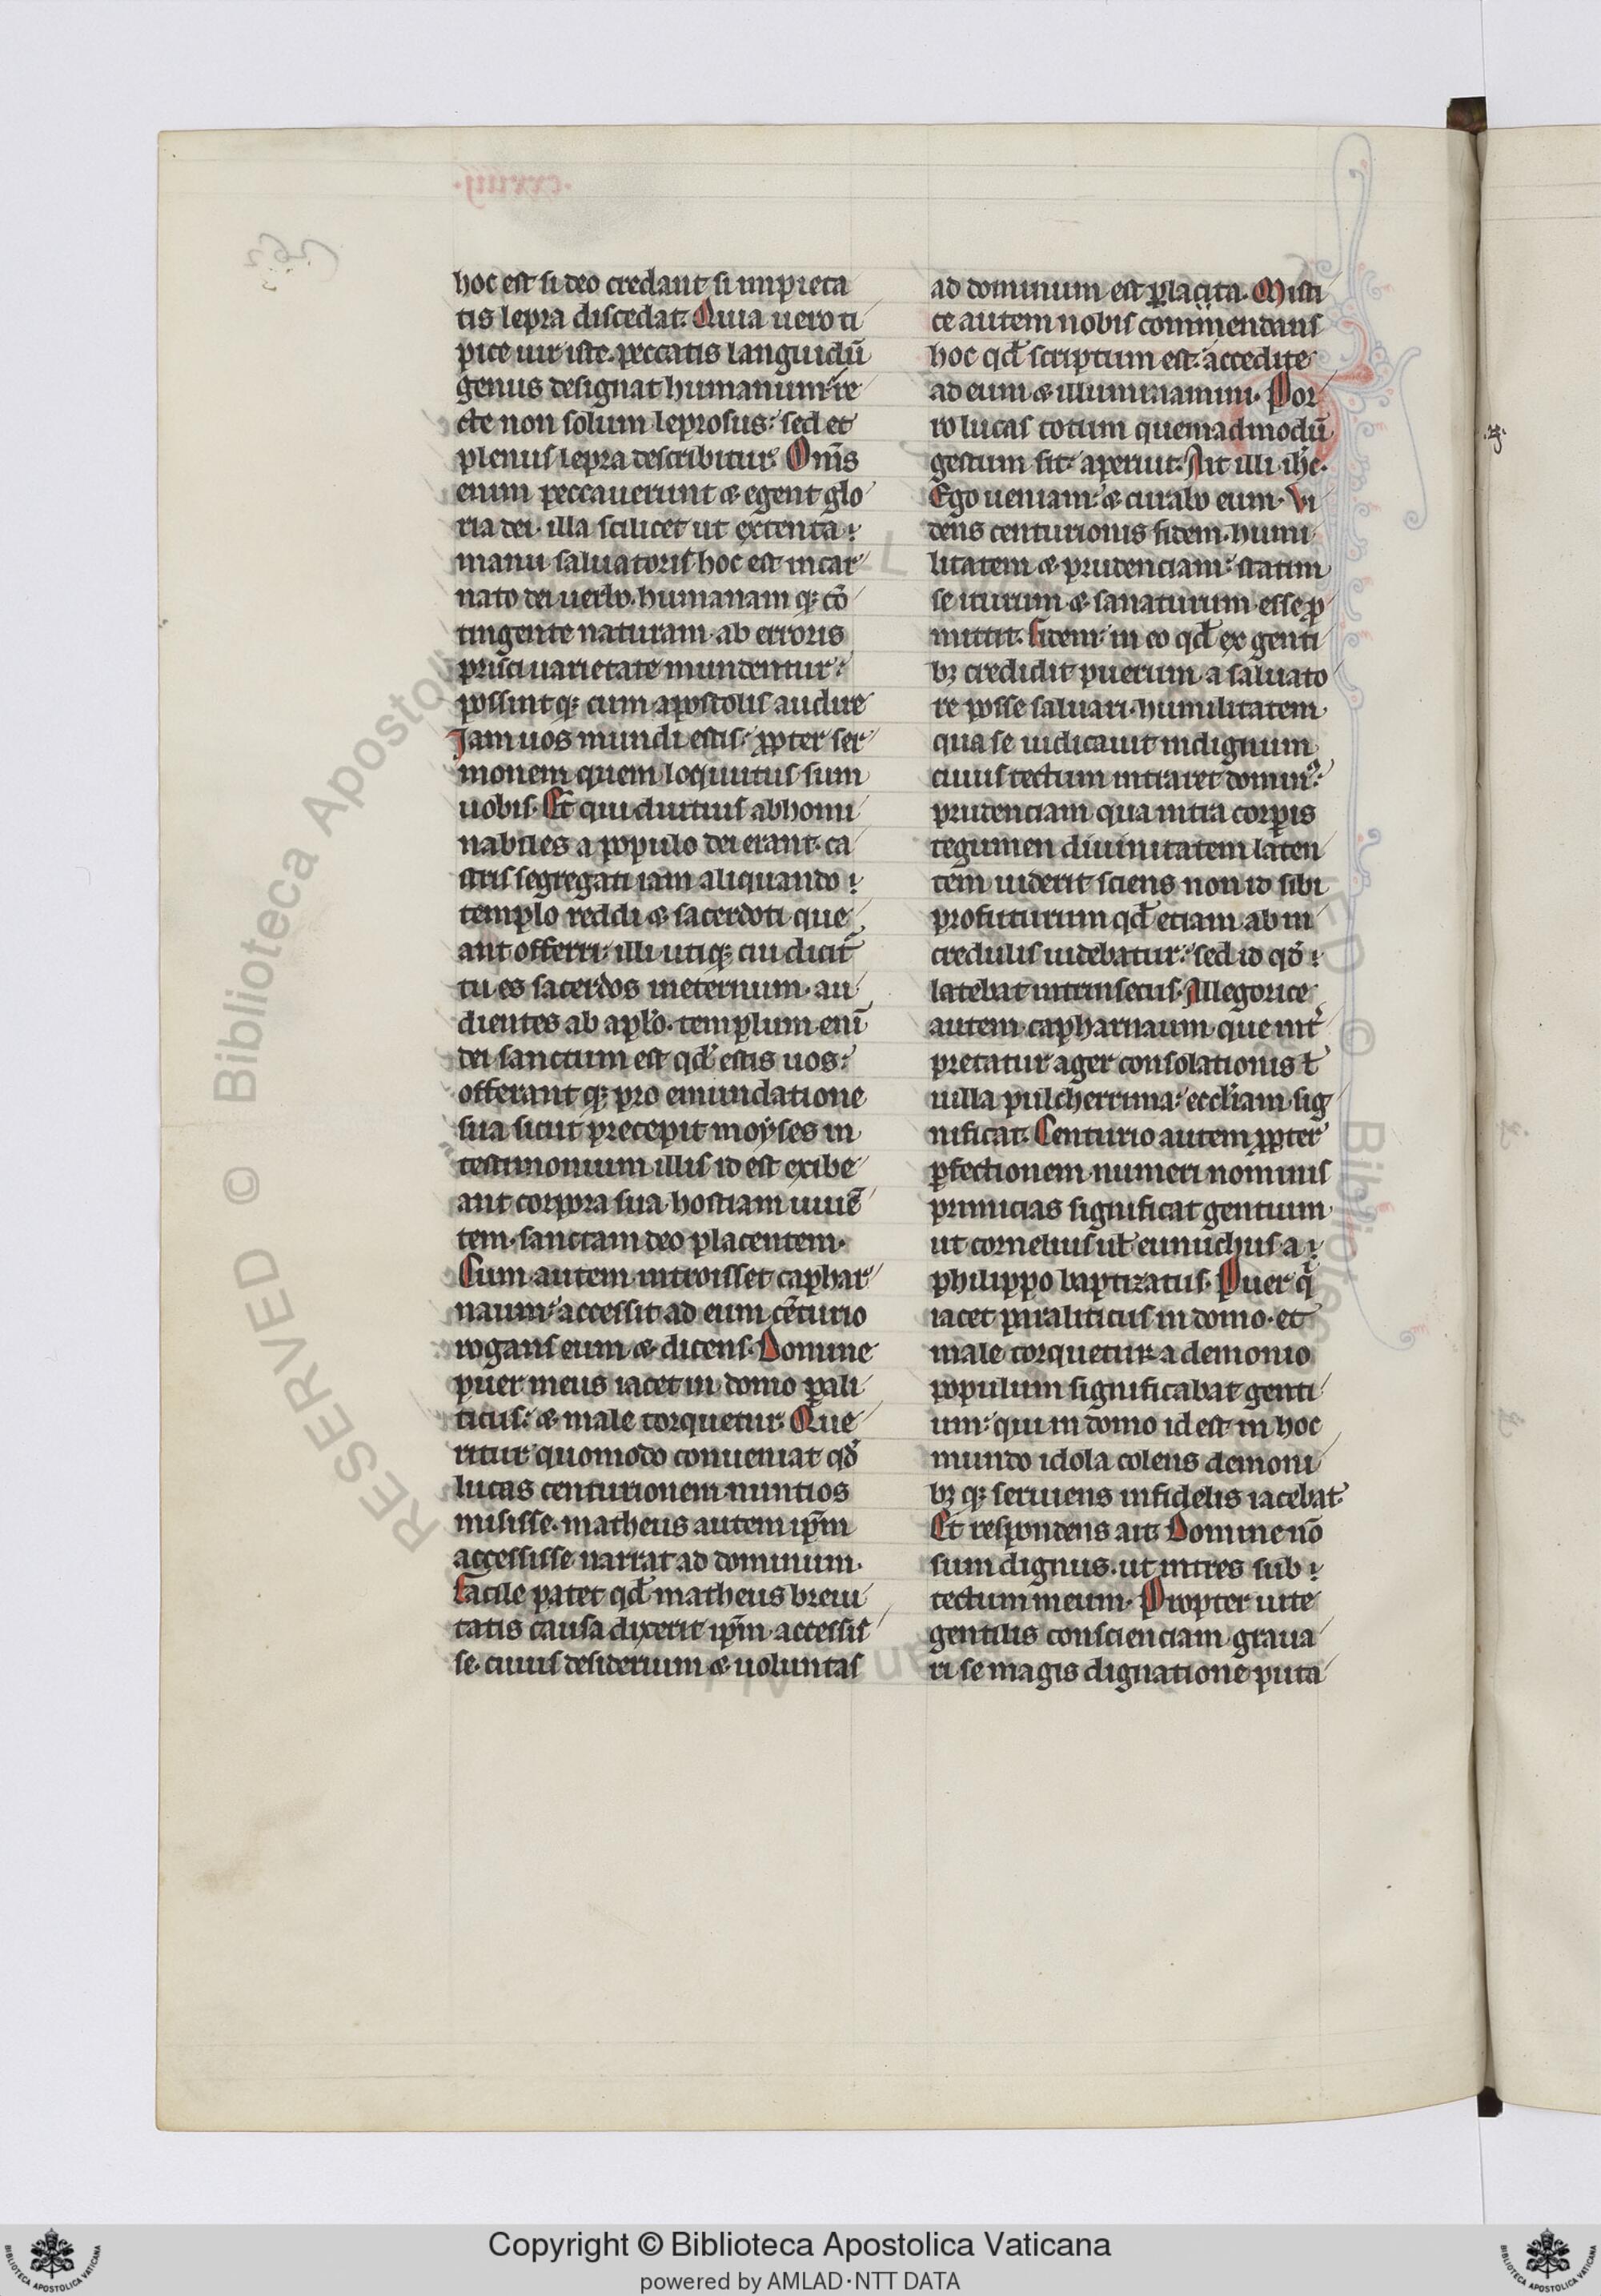 hoc est si deo credant si impieta
tis lepra discedat. Quia uero ti
pice uir iste. peccatis languidũ
genus designat humanum: re
cte non solum leprosus: sed et
plenus lepra describitur. Om̃s
enim peccauerunt & egent glo
ria dei. illa scilicet ut extenta
manu saluatoris hoc est incar
nato dei uerbo. humanam q; cõ
tingente naturam. ab erroris
prisci uarietate mundentur:
possint q; cum apostolis audire
Jam uos mundi estis: ꝓpter ser
monem quem loquutus sum
uobis. Et qui diutius abhomi
nabiles a populo dei erant. ca
stris segregati iam aliquando
templo reddi & sacerdoti que
ant offerri. illi utiq; cui dicit̃
tu es sacerdos ineternum. au
dientes ab aplo. templum enĩ
dei sanctum est qđ estis uos:
offerant q; pro emundatione
sua sicut precepit moyses in
testimonium illis id est exibe
ant corpora sua hostiam uiuẽ
tem. sanctam deo placentem.
Cum autem introisset caphar
naum: accessit ad eum cẽturio
rogans eum & dicens. Domine
puer meus iacet in domo ꝑali
ticus: & male torquetur. Que
ritur quomodo conueniat qđ
lucas centurionem nuntios
misisse. matheus autem ip̃m
accessisse narrat ad dominum.
facile patet qđ matheus breui
tatis causa dixerit ip̃m accessis
se. cuius desiderium & uoluntas
ad dominum est ꝑlacita. Misti
ce autem nobis commendans
hoc qđ scriptum est: accedite
ad eum & illuminamini. Por
ro lucas totum quemadmodũ
gestum sit: aperuit. Ait illi ihc.
Ego ueniam: & curabo eum. Vi
dens centurionis fidem. humi
litatem & prudenciam: statim
se iturum & sanaturum esse ꝓ
mittit. fidem: in eo qđ ex genti
b; credidit puerum a saluato
re posse saluari. humilitatem
qua se iudicauit indignum
cuius tectum intraret domin⁹:
prudenciam qua intra corꝑis
tegumen diuinitatem laten
tem uiderit sciens non id sibi
profuturum qđ etiam ab in
credulis uidebatur: sed id qđ
latebat intrinsecus. Allegorice
autem capharnaum que int̃
pretatur ager consolationis ł
uilla pulcherrima: eccliam sig
nificat. Centurio autem ꝓpter
ꝑfectionem numeri nominis
primicias significat gentium
ut cornelius ul eunuchus a
philippo baptizatus. Puer q̃
iacet paraliticus in domo. et
male torquetur a demonio
populum significabat genti
um: qui in domo id est in hoc
mundo idola colens demoni
b; q; seruiens infidelis iacebat
Et respondens ait. Domine nõ
sum dignus. ut intres sub
tectum meum. Propter uite
gentilis conscienciam graua
ri se magis dignatione puta
Copyright © Biblioteca Apostolica Vaticana
powered by AMLAD·NTT DATA